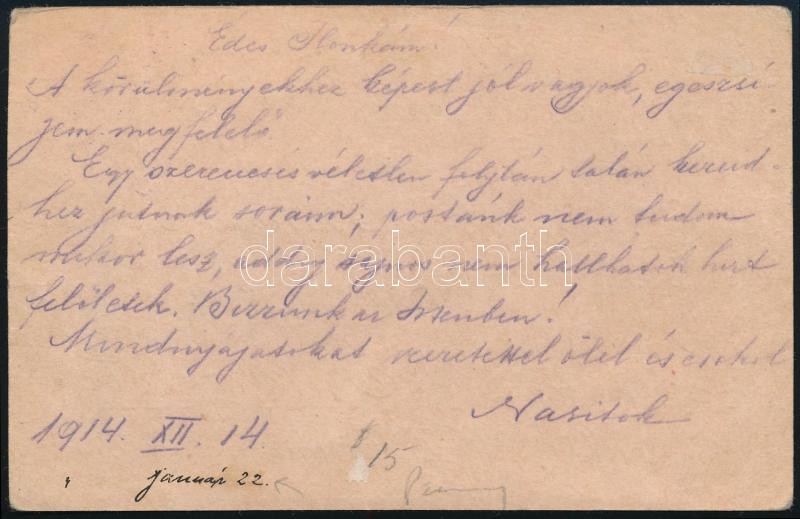 Édes Ilonkám!
A körülményekhez képest jól vagyok, egeszsé-
jem megfelelő.
Egy szerencsés véletlen folytán talán kezed-
hez jutnak soraim; postánk nem tudom
mikor lesz, addig sajnos nem hallhatok hírt
felőletek. Bizzunk az Istenben!
Mindnyajatokat szeretettel ölel és csókol
1914. XII. 14.
január 22.
$15
darabanth
www.darabanth.com